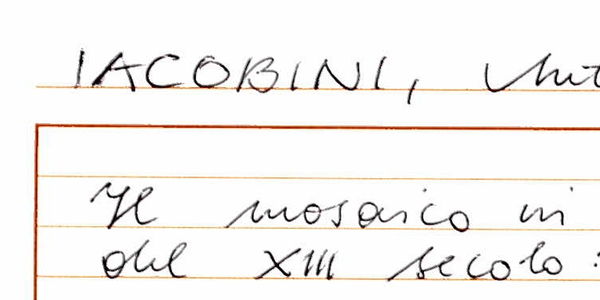 IACOBINI,
Il mosaico in
del XIII secolo: